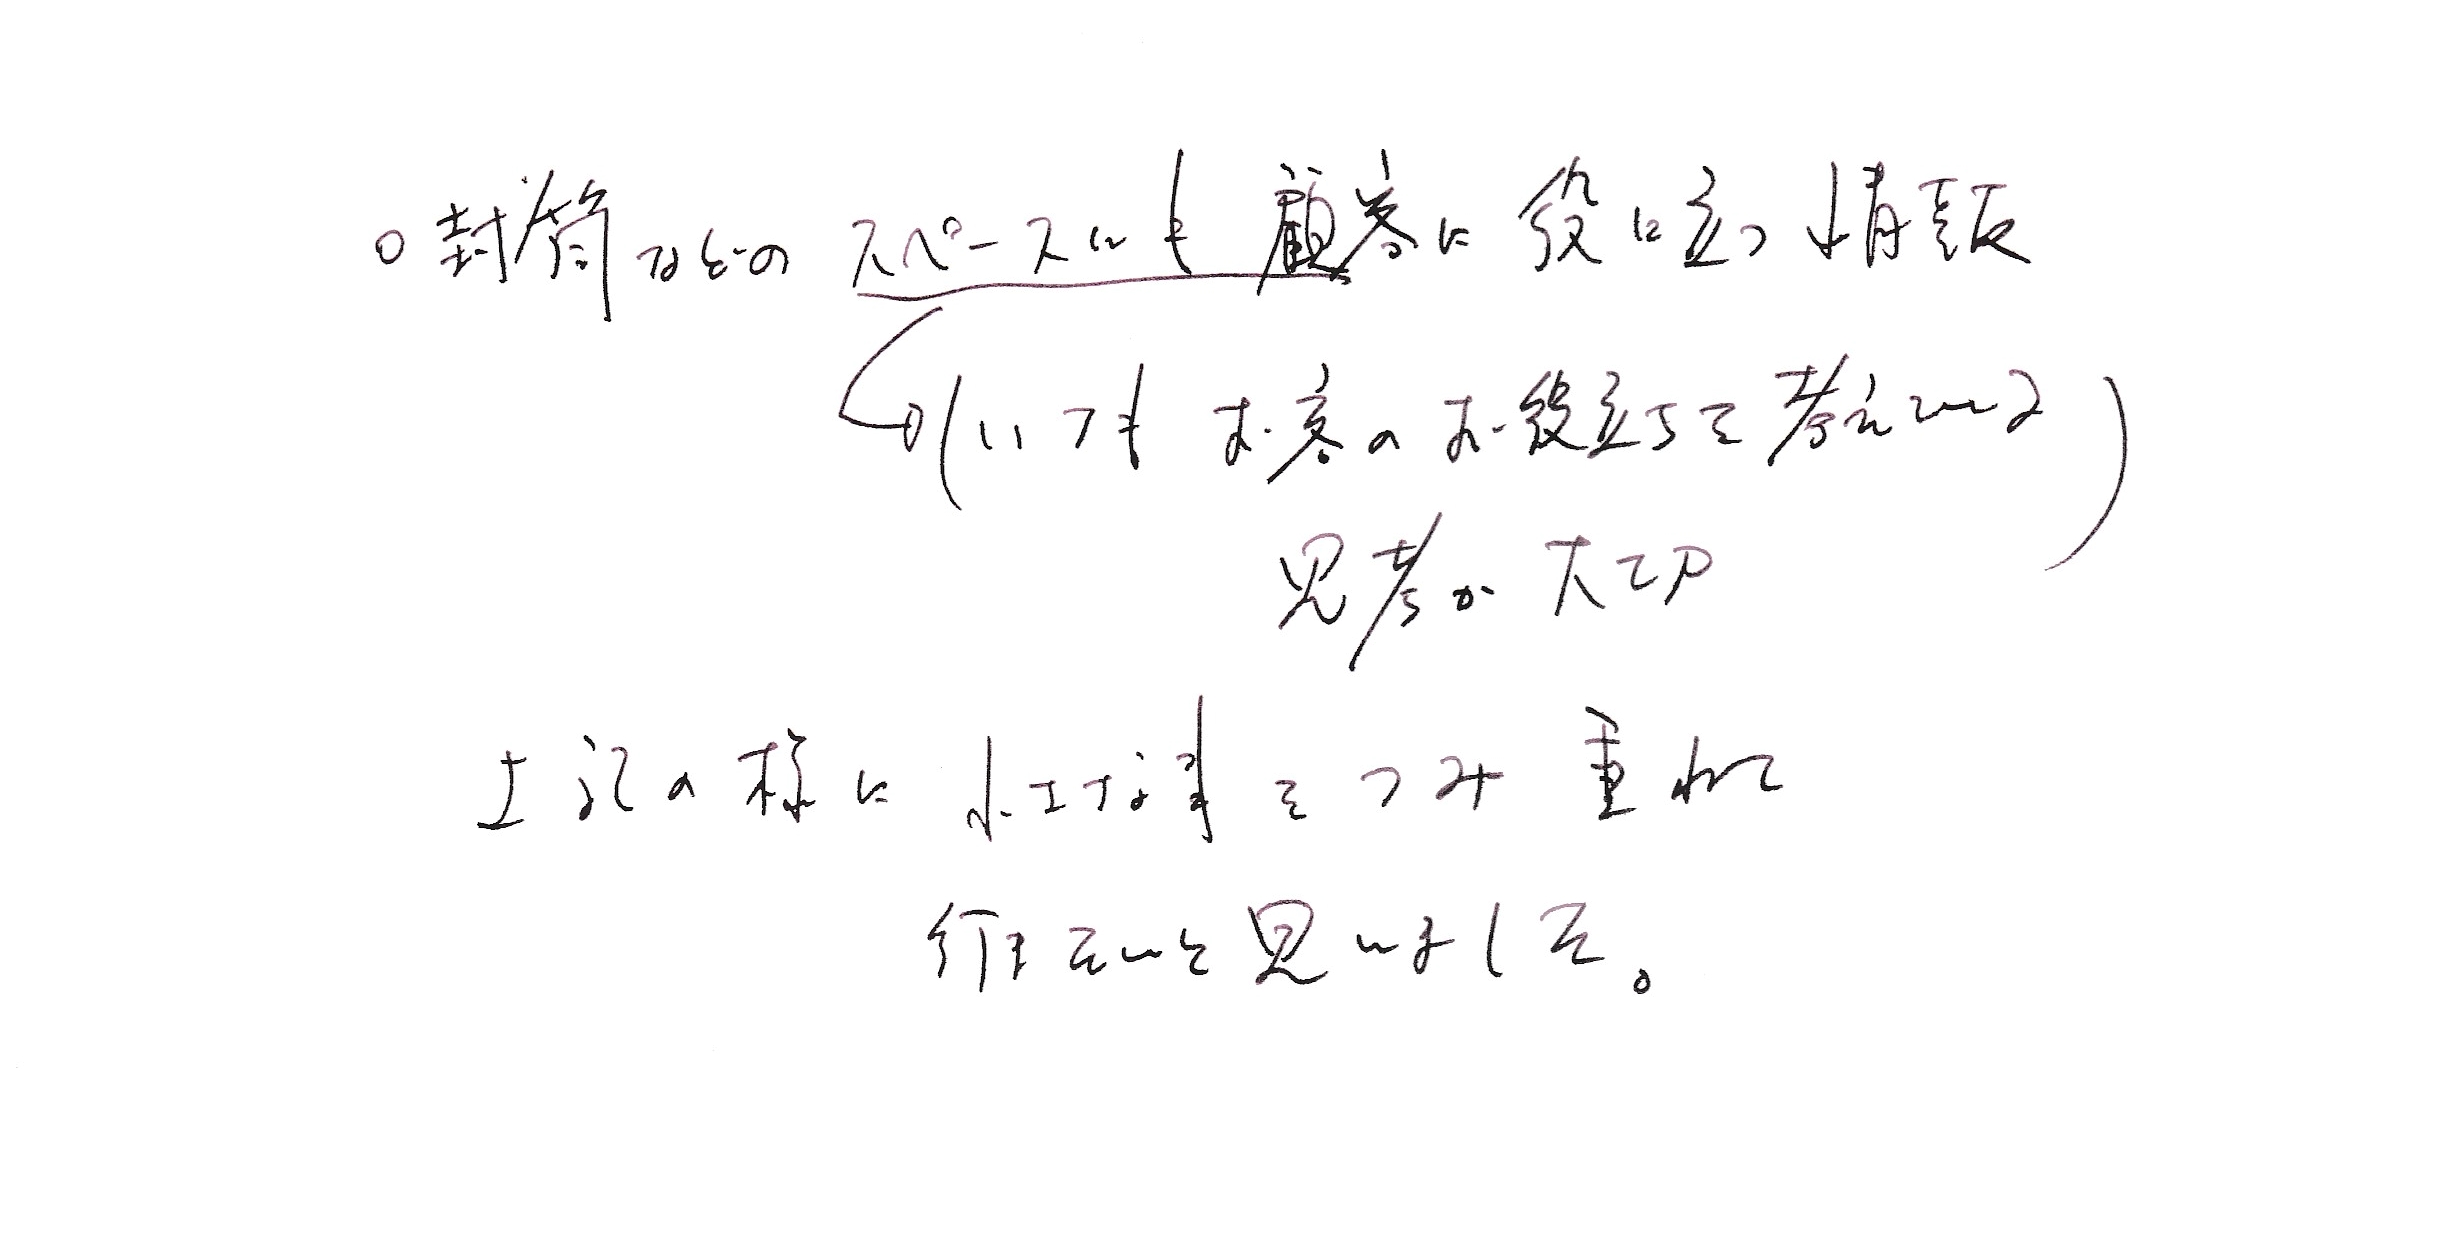 ○封筒などのスペースにも顧客に役に立つ情報
(いつもお客のお役立ちを考えている
思考が大切)
上記の様に小さな事をつみ重ねて
行きたいと思いました。